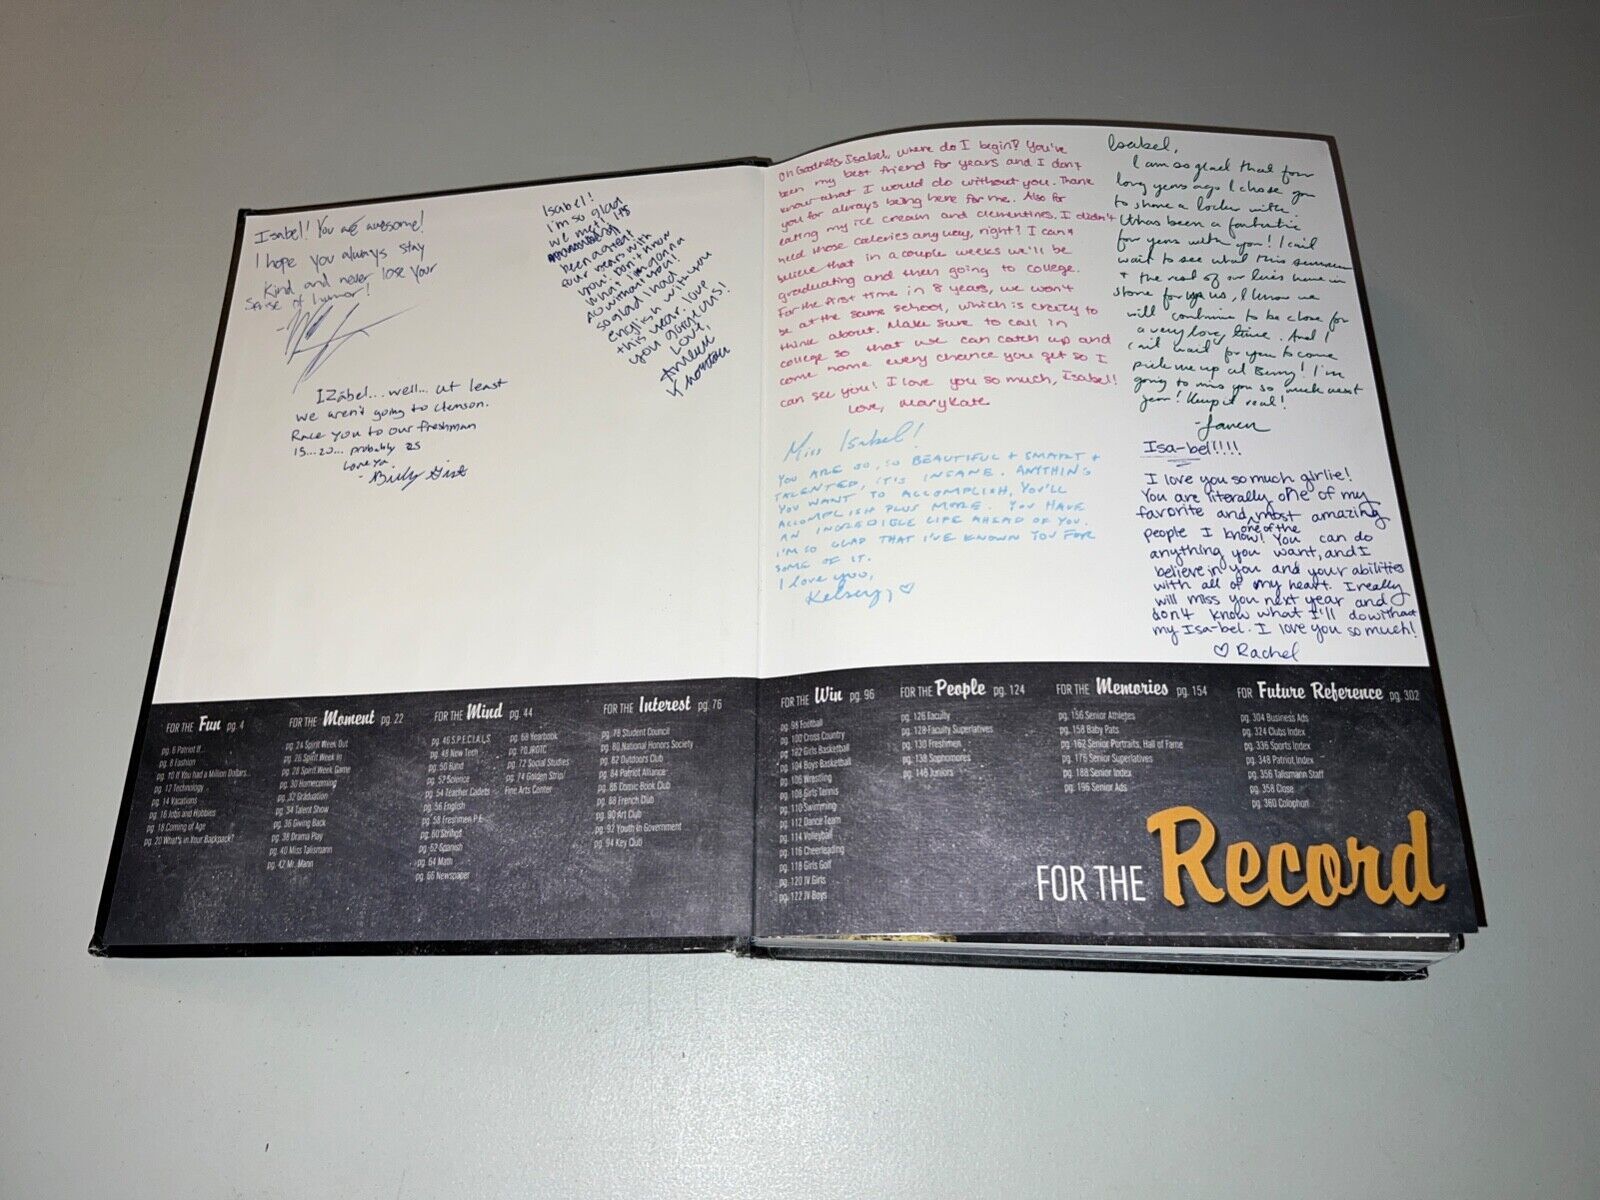 Isabel! You are awesome!
I hope you always stay
kind and never lose your
sense of humor!
IZabel... well... at least
we aren't going to clemson.
Race you to our freshman
15... 20... probably 25
Love ya
- Billy Gist
Isabel!
I'm so glad
we met!
It's
been a great
four years with
you! I don't know
what I'm gonna
do without you!
so glad I had
english with you
this year. love
you gorgeous!
Love,
Oh Goodness Isabel, where do I begin? You've
been my best friend for years and I don't
know what I would do without you. Thank
you for always being here for me. Also for
eating my ice cream and clementines. I didn't
need those calories anyway, right? I can't
believe that in a couple weeks we'll be
graduating and then going to college.
For the first time in 8 years, we won't
be at the same school, which is crazy to
think about. Make sure to call in
college so that we can catch up and
come home every chance you get so I
can see you! I love you so much, Isabel!
Love, MaryKate
Miss Isabel!
YOU ARE SO, SO BEAUTIFUL + SMART +
TALENTED, IT'S INSANE. ANYTHING
YOU WANT TO ACCOMPLISH, YOU'LL
ACCOMPLISH PLUS MORE. YOU HAVE
AN INCREDIBLE LIFE AHEAD OF YOU.
I'M SO GLAD THAT I'VE KNOWN YOU FOR
SOME OF IT.
I love you,
Kelsey, ♡
Isabel,
I am so glad that four
long years ago I chose you
to share a locker with.
It has been a fantastic
four years with you! I can't
wait to see what this summer
+ the rest of our lives have in
store for us, I know we
will continue to be close for
a very long time. And I
can't wait for you to come
pick me up at Berry! I'm
going to miss you so much next
year! Keep it real!
- Lauren
Isa-bel!!!!
I love you so much girlie!
You are literally one of my
favorite and most amazing
one of the
people I know! You can do
anything you want, and I
believe in you and your abilities
with all of my heart. I really
will miss you next year and
don't know what I'll do without
my Isa-bel. I love you so much!
♡ Rachel
FOR THE Fun pg. 4
pg. 6 Patriot If...
pg. 8 Fashion
pg. 10 If You had a Million Dollars...
pg. 12 Technology
pg. 14 Vacations
pg. 16 Jobs and Hobbies
pg. 18 Coming of Age
pg. 20 What's in Your Backpack?
FOR THE Moment pg. 22
pg. 24 Spirit Week Out
pg. 26 Spirit Week In
pg. 28 Spirit Week Game
pg. 30 Homecoming
pg. 32 Graduation
pg. 34 Talent Show
pg. 36 Giving Back
pg. 38 Drama Play
pg. 40 Miss Talismann
pg. 42 Mr. Mann
FOR THE Mind pg. 44
pg. 46 S.P.E.C.I.A.L.S.
pg. 48 New Tech
pg. 50 Band
pg. 52 Science
pg. 54 Teacher Cadets
pg. 56 English
pg. 58 Freshmen P.E.
pg. 60 Strings
pg. 62 Spanish
pg. 64 Math
pg. 66 Newspaper
pg. 68 Yearbook
pg. 70 JROTC
pg. 72 Social Studies
pg. 74 Golden Strip/
Fine Arts Center
FOR THE Interest pg. 76
pg. 78 Student Council
pg. 80 National Honors Society
pg. 82 Outdoors Club
pg. 84 Patriot Alliance
pg. 86 Comic Book Club
pg. 88 French Club
pg. 90 Art Club
pg. 92 Youth in Government
pg. 94 Key Club
FOR THE Win pg. 96
pg. 98 Football
pg. 100 Cross Country
pg. 102 Girls Basketball
pg. 104 Boys Basketball
pg. 106 Wrestling
pg. 108 Girls Tennis
pg. 110 Swimming
pg. 112 Dance Team
pg. 114 Volleyball
pg. 116 Cheerleading
pg. 118 Girls Golf
pg. 120 JV Girls
pg. 122 JV Boys
FOR THE People pg. 124
pg. 126 Faculty
pg. 128 Faculty Superlatives
pg. 130 Freshmen
pg. 138 Sophomores
pg. 146 Juniors
FOR THE Memories pg. 154
pg. 156 Senior Athletes
pg. 158 Baby Pats
pg. 162 Senior Portraits, Hall of Fame
pg. 176 Senior Superlatives
pg. 188 Senior Index
pg. 196 Senior Ads
FOR Future Reference pg. 302
pg. 304 Business Ads
pg. 324 Clubs Index
pg. 336 Sports Index
pg. 348 Patriot Index
pg. 356 Talismann Staff
pg. 358 Close
pg. 360 Colophon
FOR THE Record